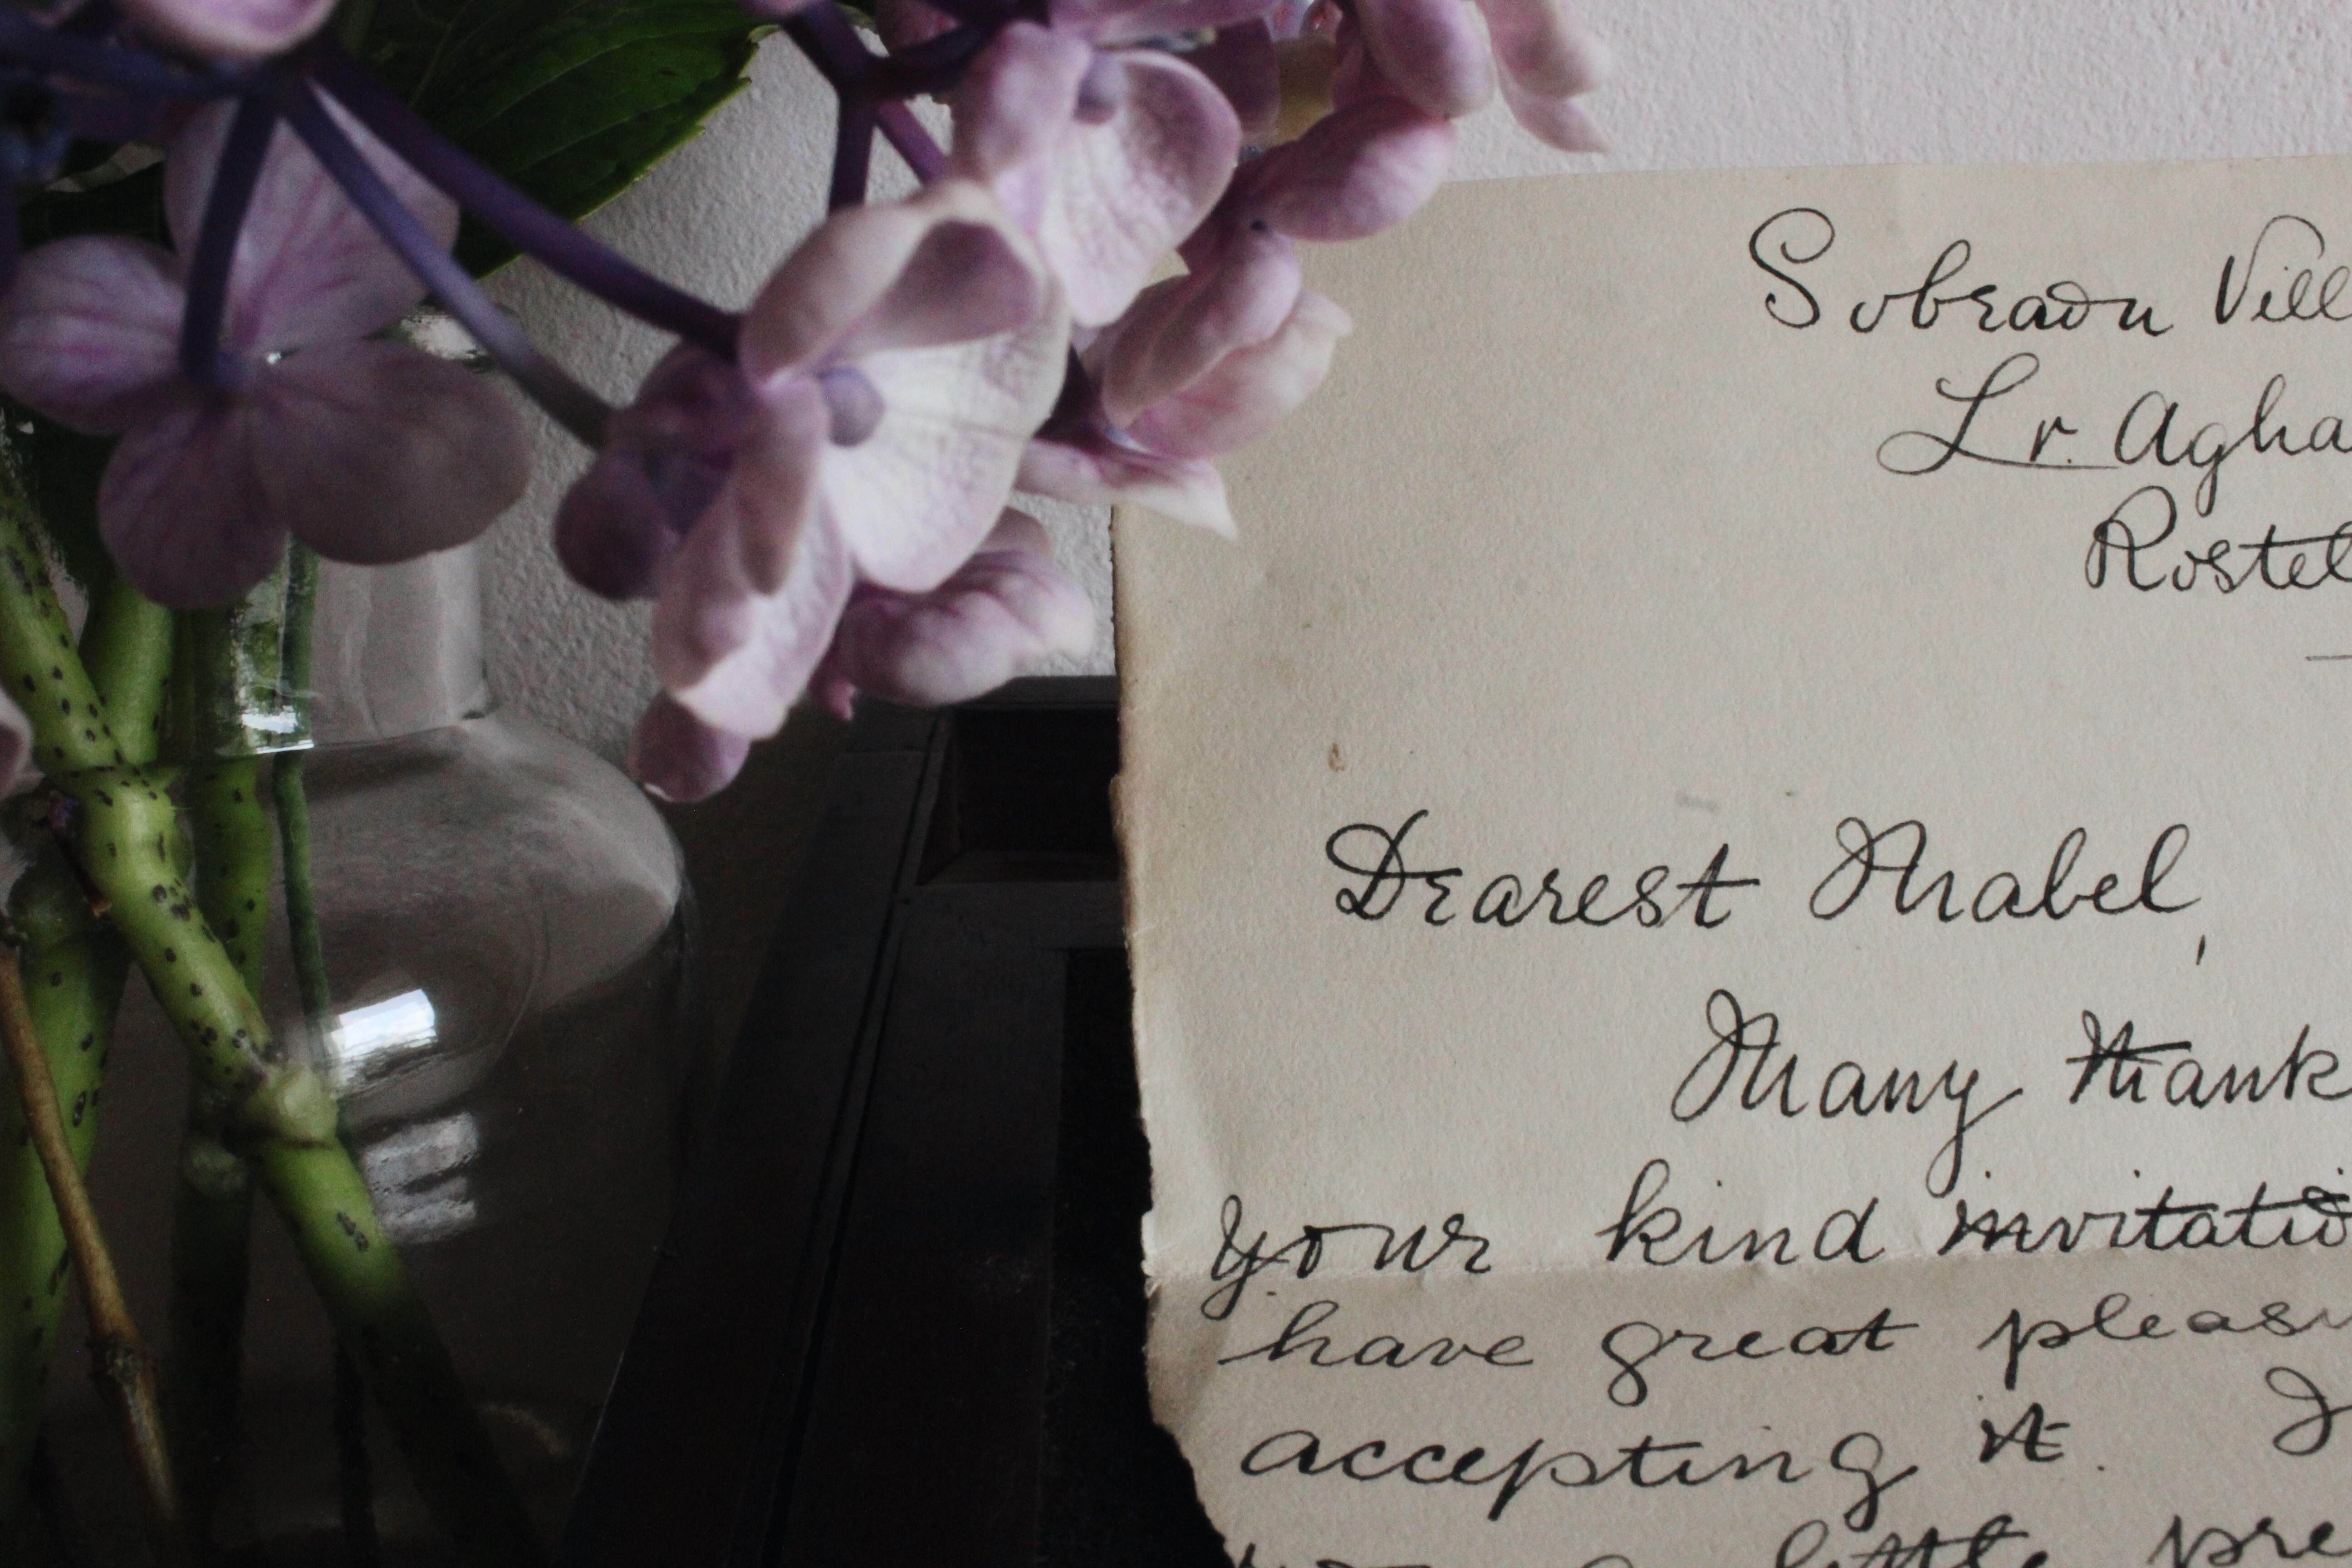 Sobraon Vill
Lr. Agha
Rostel
Dearest Mabel,
Many thank
your kind invitatio
have great pleasu
accepting it. I
little pre